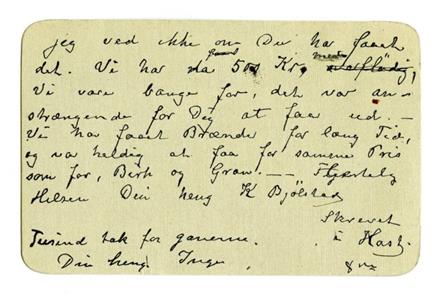 jeg ved ikke om Du har faaet
det. Vi har da faaet 50 Kr, med
Vi vare bange for, det var an-
strængende for Dig at faa ud. —
Vi har faaet Brænde for lang Tid,
og var heldig at faa for samme Pris
som før, Birk og Gran. — Hjertelig
Hilsen Din heng K Bjölstad
Skrevet
i Hast.
Tusind tak for gaverne.
Din heng. Inga